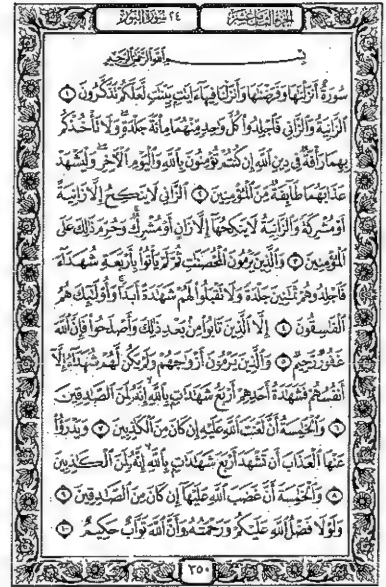 الجزء الثامن عشر
٢٤ سورة النور
بِسْمِ اللَّهِ الرَّحْمَٰنِ الرَّحِيمِ
سُورَةٌ أَنزَلْنَٰهَا وَفَرَضْنَٰهَا وَأَنزَلْنَا فِيهَآ ءَايَٰتٍۭ بَيِّنَٰتٍ لَّعَلَّكُمْ تَذَكَّرُونَ ١
ٱلزَّانِيَةُ وَٱلزَّانِى فَٱجْلِدُوا۟ كُلَّ وَٰحِدٍ مِّنْهُمَا مِا۟ئَةَ جَلْدَةٍ وَلَا تَأْخُذْكُم
بِهِمَا رَأْفَةٌ فِى دِينِ ٱللَّهِ إِن كُنتُمْ تُؤْمِنُونَ بِٱللَّهِ وَٱلْيَوْمِ ٱلْءَاخِرِ وَلْيَشْهَدْ
عَذَابَهُمَا طَآئِفَةٌ مِّنَ ٱلْمُؤْمِنِينَ ٢ ٱلزَّانِى لَا يَنكِحُ إِلَّا زَانِيَةً
أَوْ مُشْرِكَةً وَٱلزَّانِيَةُ لَا يَنكِحُهَآ إِلَّا زَانٍ أَوْ مُشْرِكٌ وَحُرِّمَ ذَٰلِكَ عَلَى
ٱلْمُؤْمِنِينَ ٣ وَٱلَّذِينَ يَرْمُونَ ٱلْمُحْصَنَٰتِ ثُمَّ لَمْ يَأْتُوا۟ بِأَرْبَعَةِ شُهَدَآءَ
فَٱجْلِدُوهُمْ ثَمَٰنِينَ جَلْدَةً وَلَا تَقْبَلُوا۟ لَهُمْ شَهَٰدَةً أَبَدًا وَأُو۟لَٰٓئِكَ هُمُ
ٱلْفَٰسِقُونَ ٤ إِلَّا ٱلَّذِينَ تَابُوا۟ مِنۢ بَعْدِ ذَٰلِكَ وَأَصْلَحُوا۟ فَإِنَّ ٱللَّهَ
غَفُورٌ رَّحِيمٌ ٥ وَٱلَّذِينَ يَرْمُونَ أَزْوَٰجَهُمْ وَلَمْ يَكُن لَّهُمْ شُهَدَآءُ إِلَّآ
أَنفُسُهُمْ فَشَهَٰدَةُ أَحَدِهِمْ أَرْبَعُ شَهَٰدَٰتٍۭ بِٱللَّهِ إِنَّهُۥ لَمِنَ ٱلصَّٰدِقِينَ
٦ وَٱلْخَٰمِسَةُ أَنَّ لَعْنَتَ ٱللَّهِ عَلَيْهِ إِن كَانَ مِنَ ٱلْكَٰذِبِينَ ٧ وَيَدْرَؤُا۟
عَنْهَا ٱلْعَذَابَ أَن تَشْهَدَ أَرْبَعَ شَهَٰدَٰتٍۭ بِٱللَّهِ إِنَّهُۥ لَمِنَ ٱلْكَٰذِبِينَ
٨ وَٱلْخَٰمِسَةَ أَنَّ غَضَبَ ٱللَّهِ عَلَيْهَآ إِن كَانَ مِنَ ٱلصَّٰدِقِينَ ٩
وَلَوْلَا فَضْلُ ٱللَّهِ عَلَيْكُمْ وَرَحْمَتُهُۥ وَأَنَّ ٱللَّهَ تَوَّابٌ حَكِيمٌ ١٠
٣٥٠